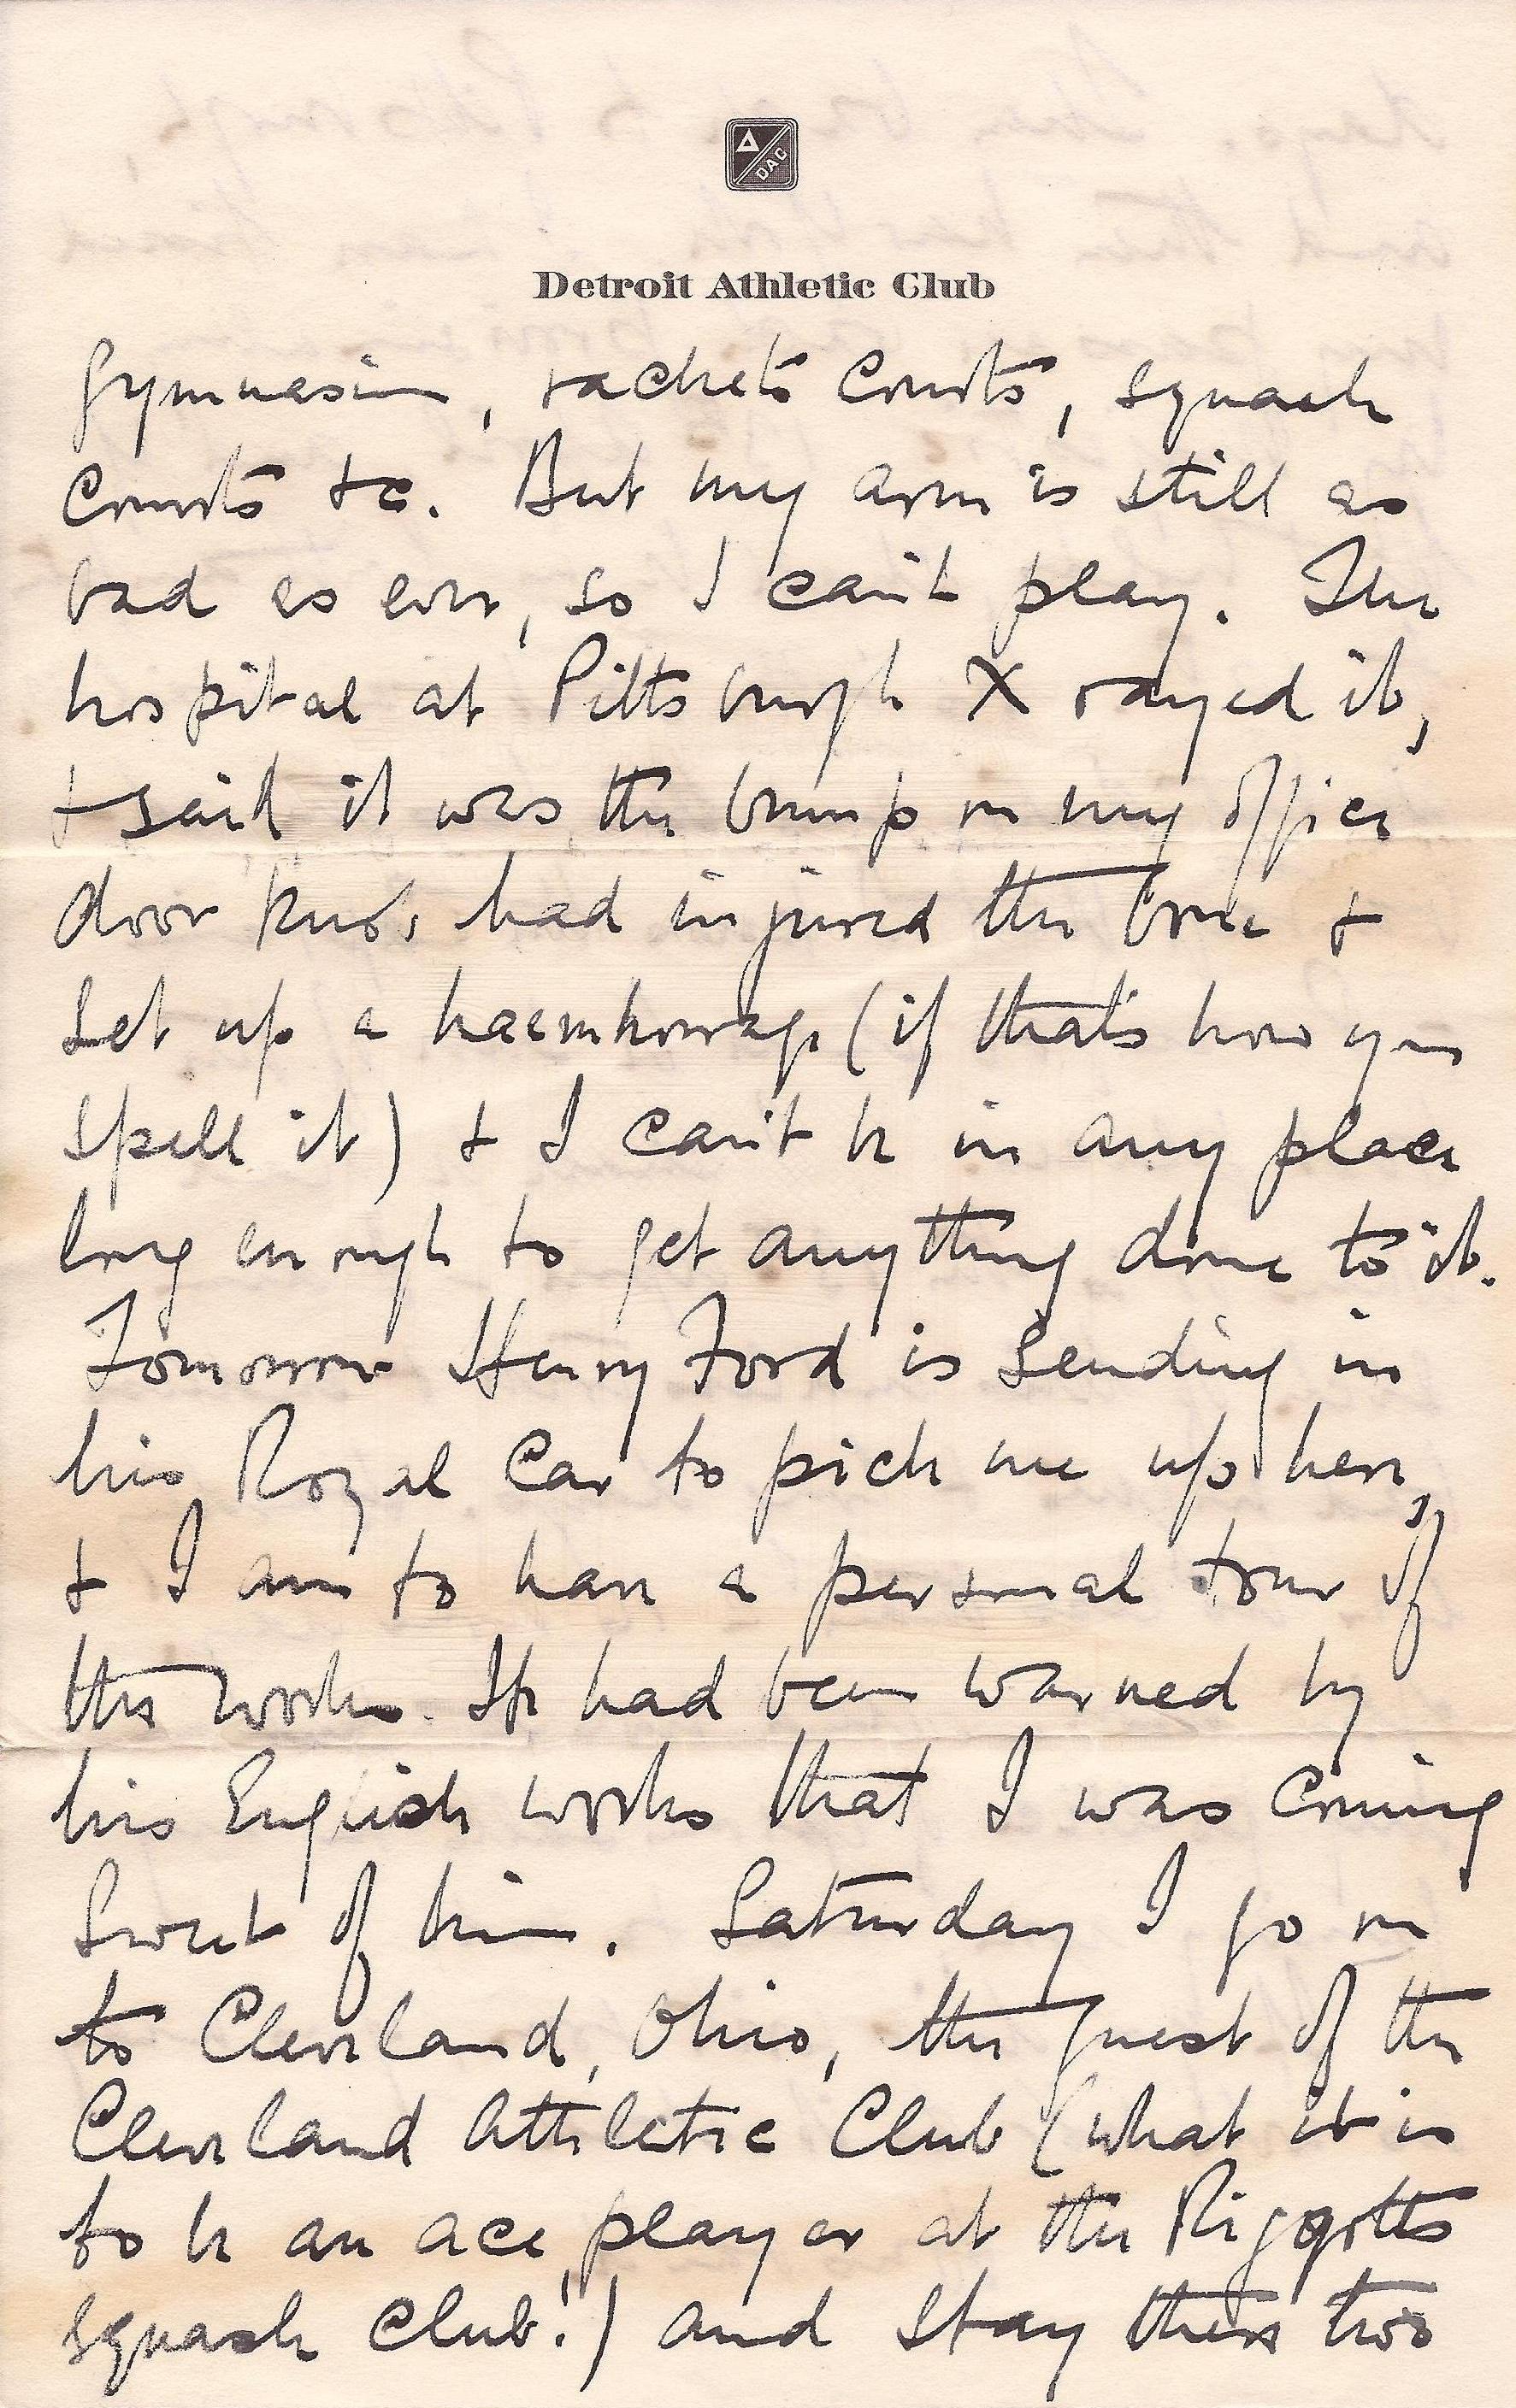 DAC
Detroit Athletic Club
gymnasium, rackets courts, squash
courts &c. But my arm is still as
bad as ever, so I can't play. The
hospital at Pittsburgh X rayed it,
& said it was the bump on my office
door knob, had injured the bone &
set up a haemhorrage (if that's how you
spell it) & I can't be in any place
long enough to get anything done to it.
Tomorrow Henry Ford is sending in
his Royal Car to pick me up here,
& I am to have a personal tour of
the works. He had been warned by
his English works that I was coming
 of him. Saturday I go on
to Cleveland, Ohio, the guest of the
Cleveland Athletic Club (what it is
to be an ace player at the
squash club!) and stay there two